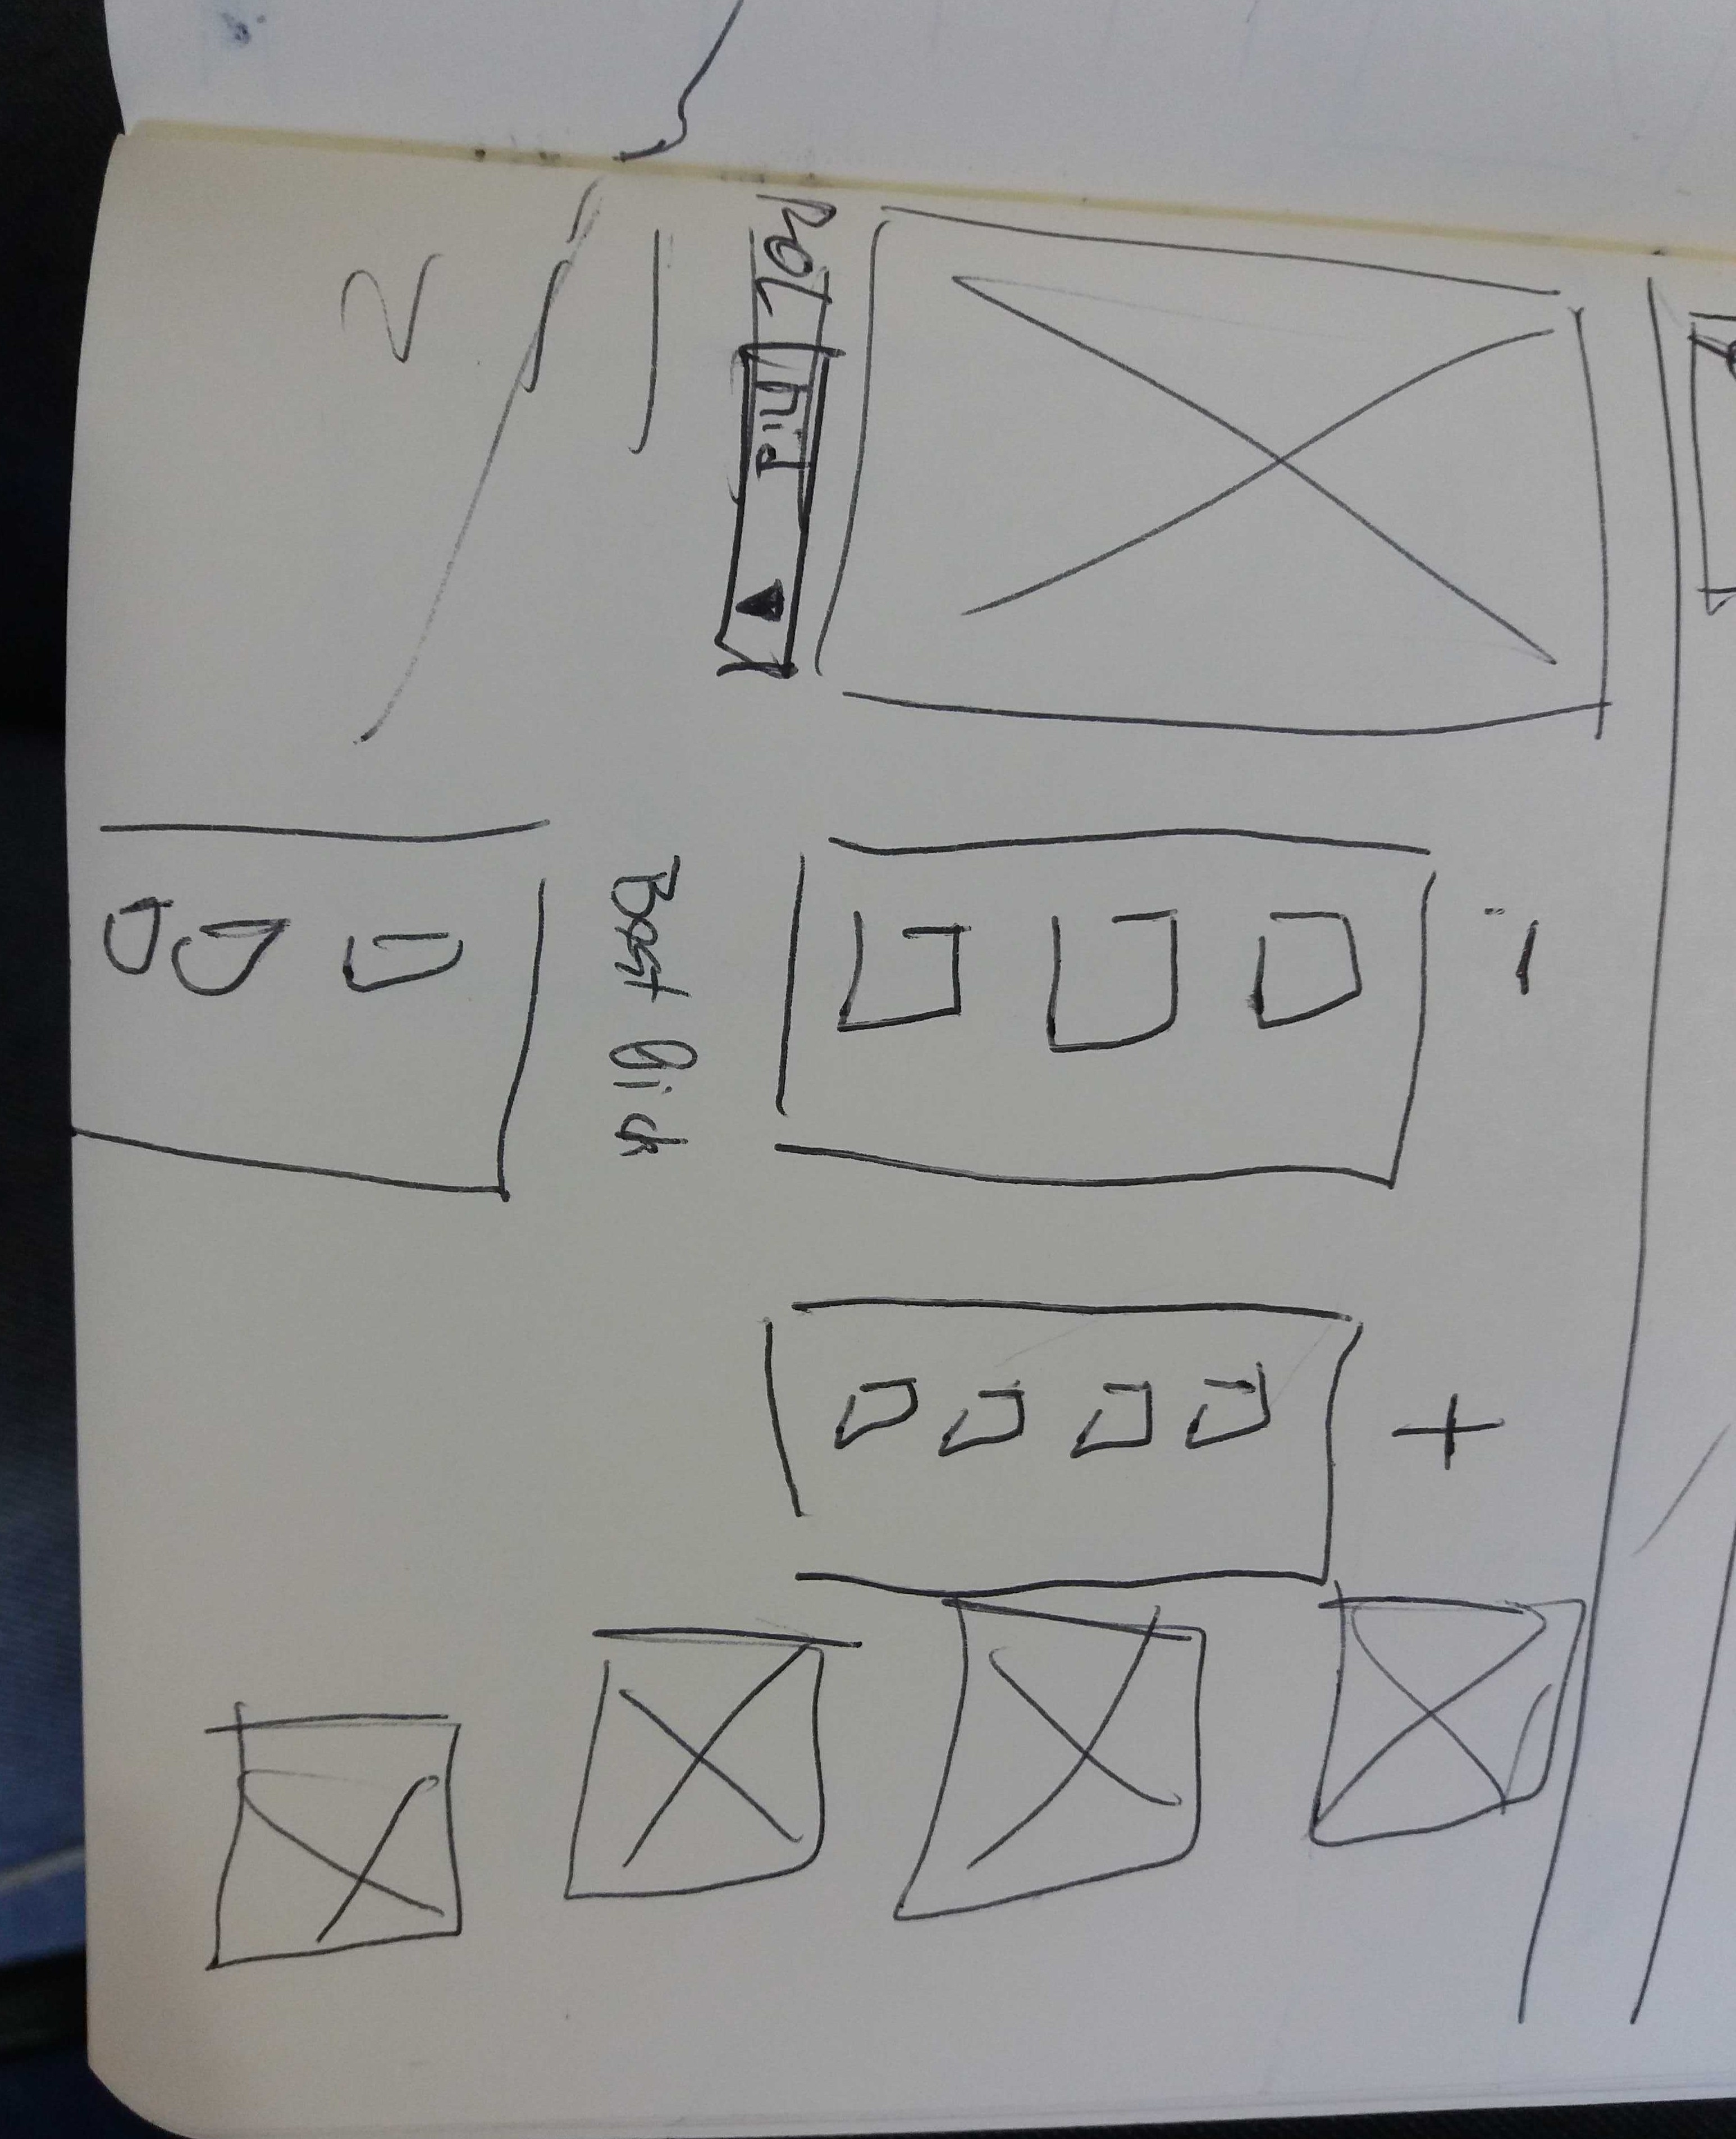 -
+
Rol mid ▼
Best Pick